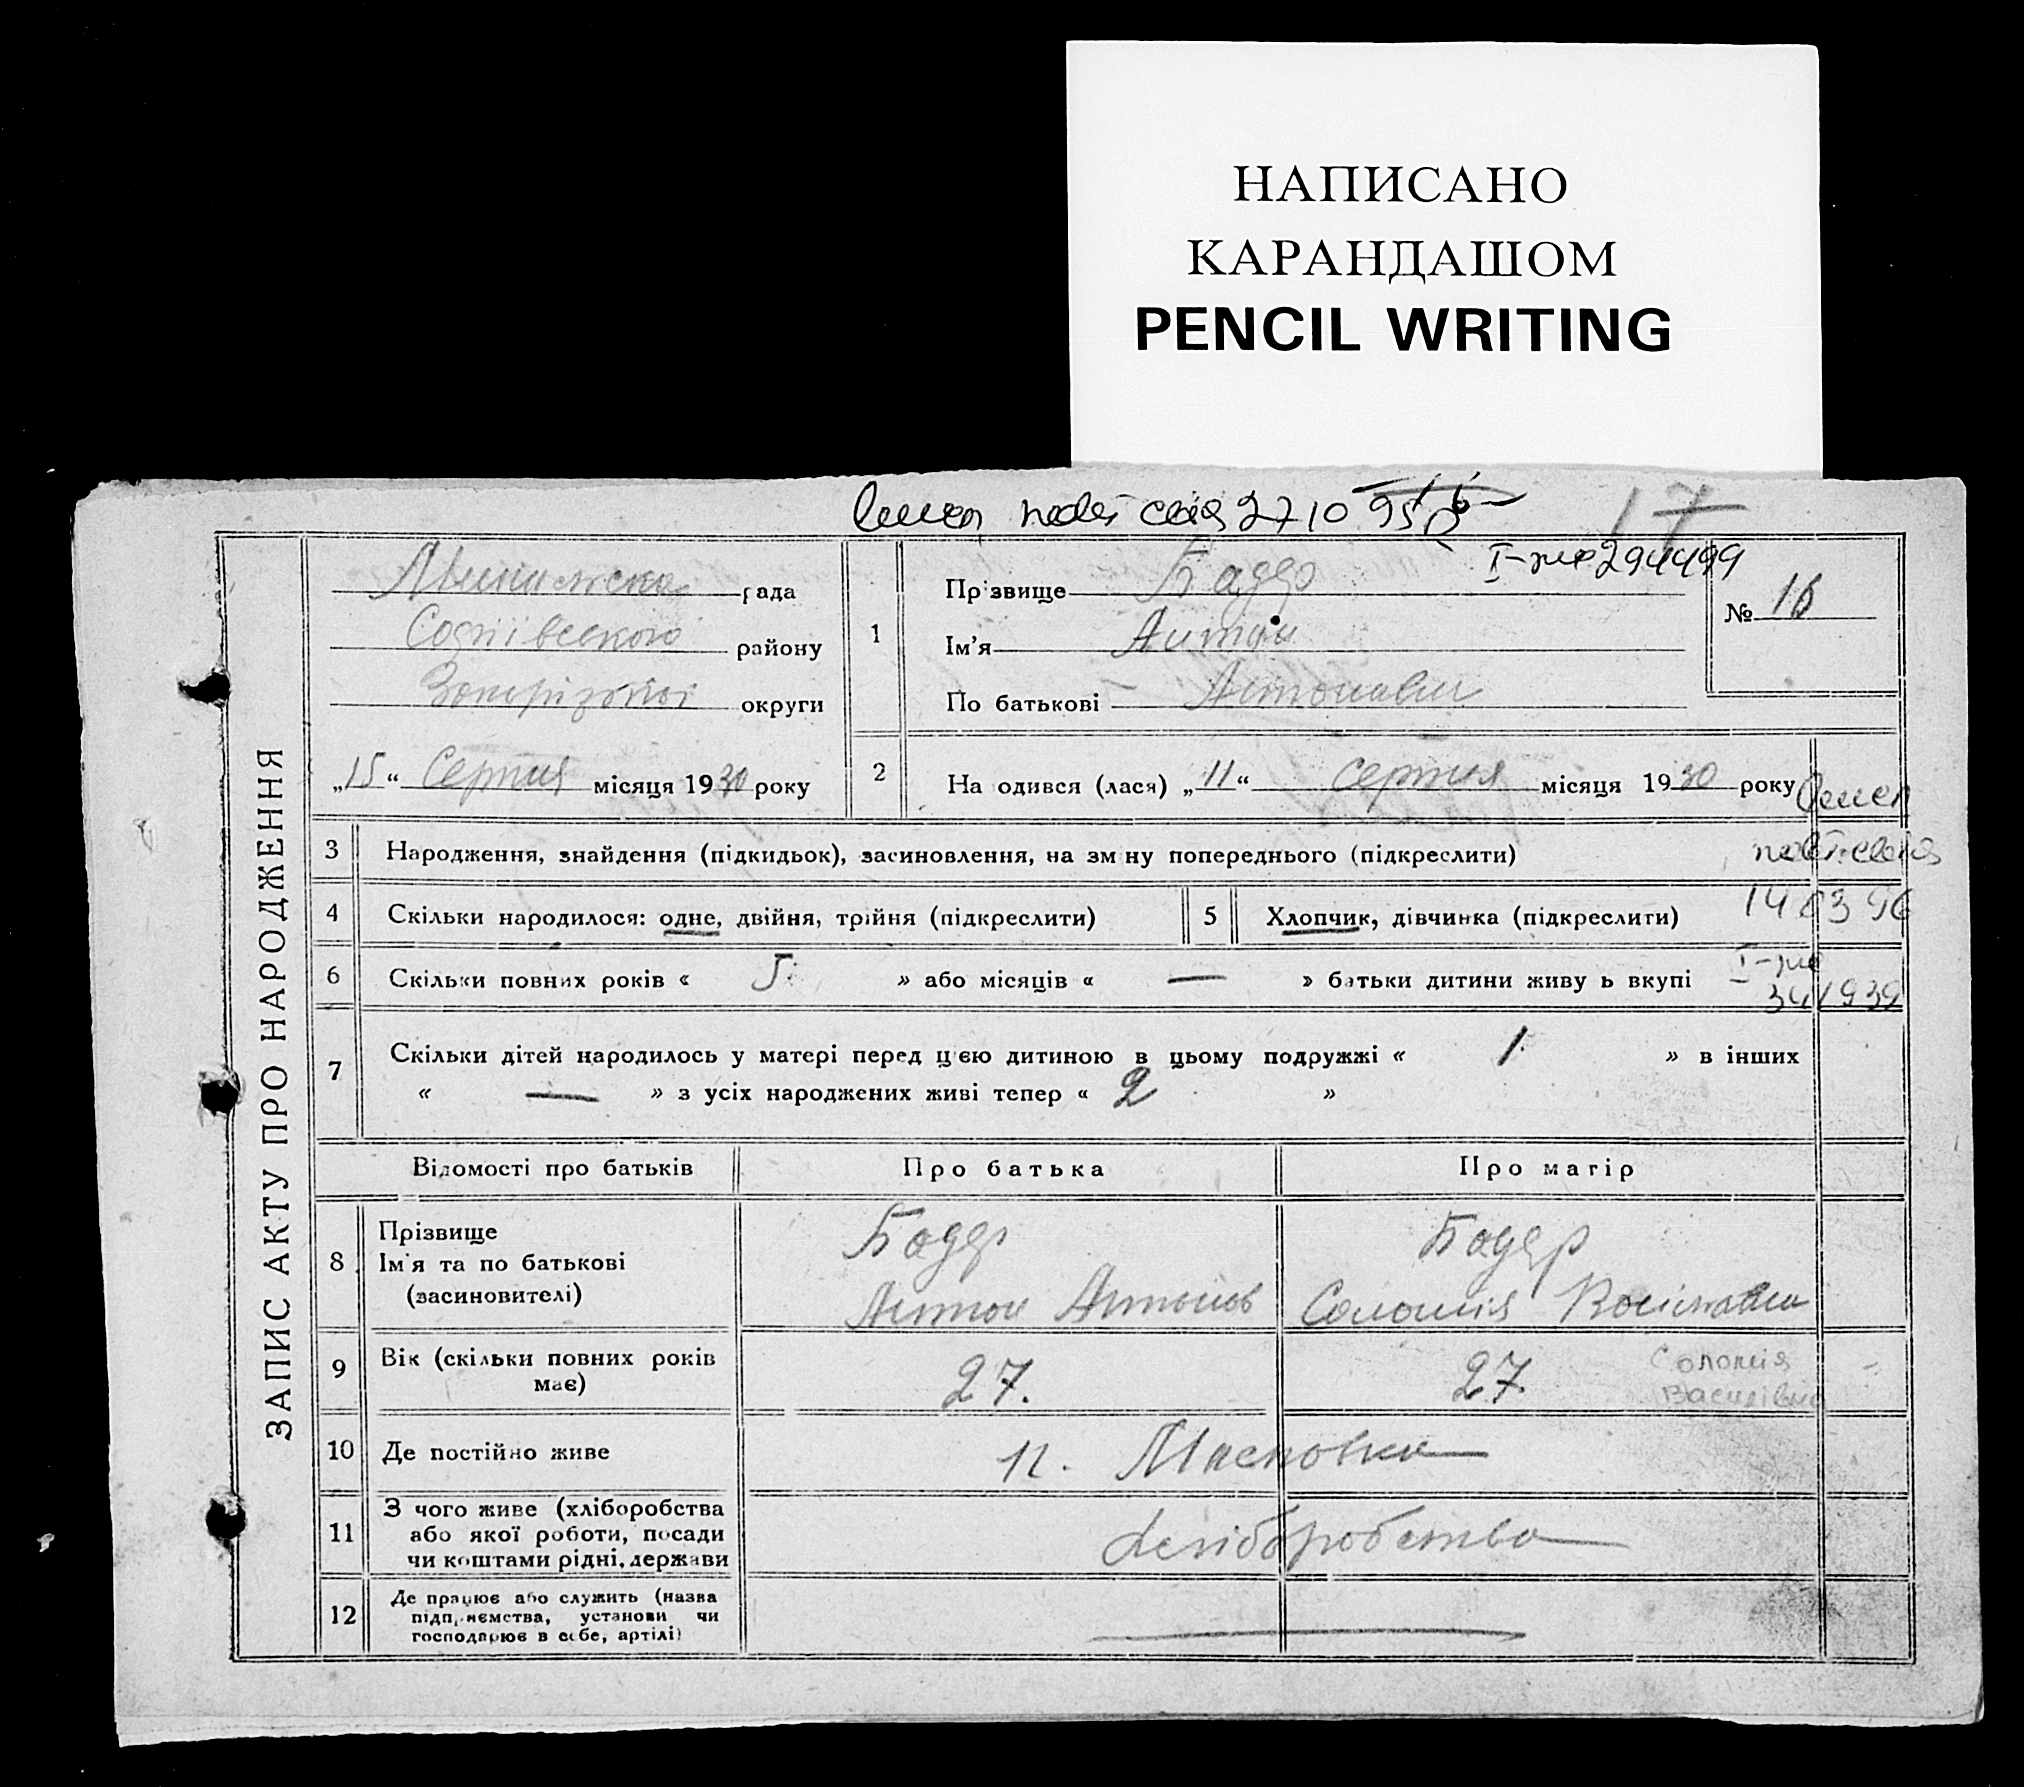 НАПИСАНО
КАРАНДАШОМ
PENCIL WRITING
27 10 95
17
I-жс 294499
ЗАПИС АКТУ ПРО НАРОДЖЕННЯ
рада
Софиївського району
Запорізької округи
„15“ Серпня місяця 1930 року
1
Прізвище Бадер
Ім'я Антон
По батькові Антонович
№ 16
2
На одився (лася) „11“ серпня місяця 1930 року
3 Народження, знайдення (підкидьок), засиновлення, на зміну попереднього (підкреслити)
14 03 96
4 Скільки народилося: одне, двійня, трійня (підкреслити)
5 Хлопчик, дівчинка (підкреслити)
6 Скільки повних років « 5 » або місяців « — » батьки дитини живуть вкупі
I-жс
341939
7 Скільки дітей народилось у матері перед цією дитиною в цьому подружжі « 1 » в інших
« — » з усіх народжених живі тепер « 2 »
Відомості про батьків Про батька Про матір
8 Прізвище
Ім'я та по батькові
(засиновителі)
Бадер
Антон Антонов
Бадер
Соломія
9 Вік (скільки повних років має)
27.
27.
Соломія
Василівна
10 Де постійно живе
п.
11 З чого живе (хліборобства
або якої роботи, посади
чи коштами рідні, держави
Хліборобство
12 Де працює або служить (назва
підприємства, установи чи
господарює в себе, артілі)